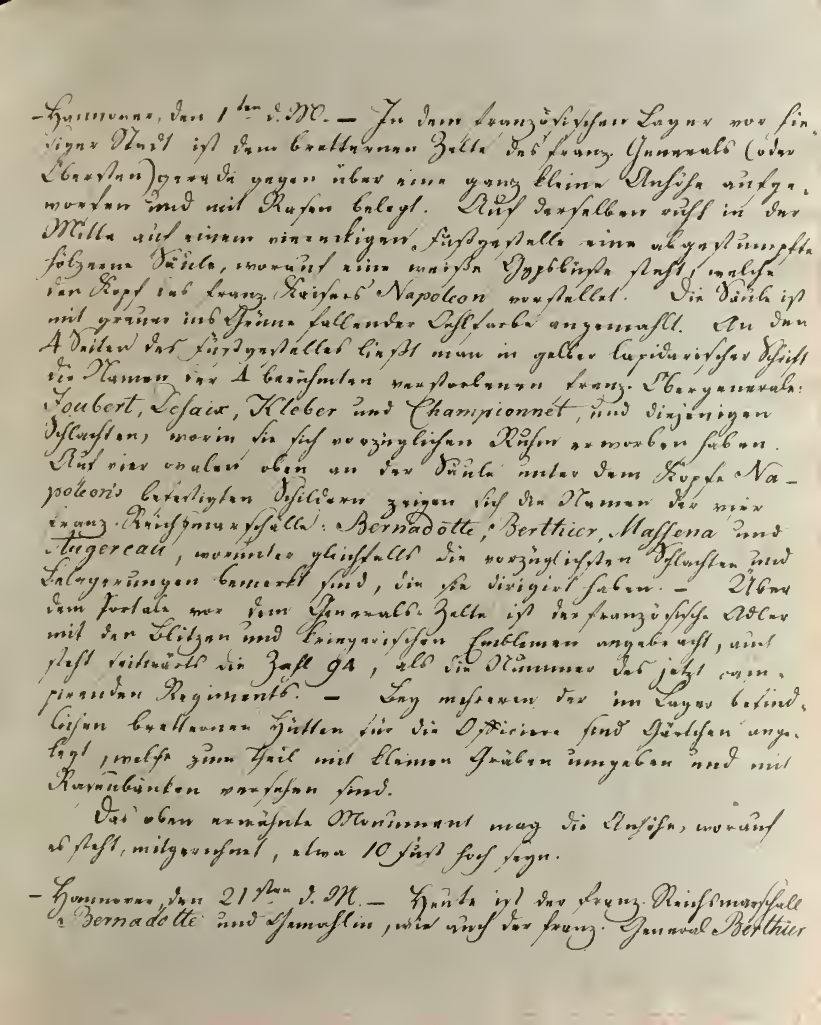 – Hannover, den 1ten d. M. – In dem französischen Lager vor hie-
siger Stadt ist dem bretternen Zelte des franz. Generals (oder
Obersten) gerade gegen über eine ganz kleine Anhöhe aufge-
worfen und mit Rasen belegt. Auf derselben ruht in der
Mitte auf einem viereckigen Fußgestelle eine abgestumpfte
hölzerne Säule, worauf eine weiße Gypsbüste steht, welche
den Kopf des franz. Kaisers Napoleon vorstellet. Die Säule ist
mit grauer ins Grüne fallender Oehlfarbe angemahlt. An den
4 Seiten des Fußgestelles ließt man in gelber lapidarischer Schrift
die Namen der 4 berühmten verstorbenen franz. Obergenerale:
Joubert, Desaix, Kleber und Championnet, und diejenigen
Schlachten, worin sie sich vorzüglichen Ruhm erworben haben.
Auf vier ovalen oben an der Säule unter dem Kopfe Na-
poleon's befestigten Schildern zeigen sich die Namen der vier
franz. Reichsmarschälle: Bernadotte, Berthier, Massena und
Augereau, worunter gleichfalls die vorzüglichsten Schlachten und
Belagerungen bemerkt sind, die sie dirigirt haben. – Über
dem Portale vor dem Generals-Zelte ist der französische Adler
mit den Blitzen und kriegerischen Emblemen angebracht, auch
steht seitwärts die Zahl 94, als die Nummer des jetzt cam-
pirenden Regiments. – Bey mehreren der im Lager befind-
lichen bretternen Hütten für die Officiere sind Gärtchen ange-
legt, welche zum Theil mit kleinen Gräben umgeben und mit
Rasenbänken versehen sind.
Das oben erwähnte Monument mag die Anhöhe, worauf
es steht, mitgerechnet, etwa 10 Fuß hoch seyn.
– Hannover, den 21sten d. M. – Heute ist der franz. Reichsmarschall
Bernadotte und Gemahlin, wie auch der franz. General Berthier